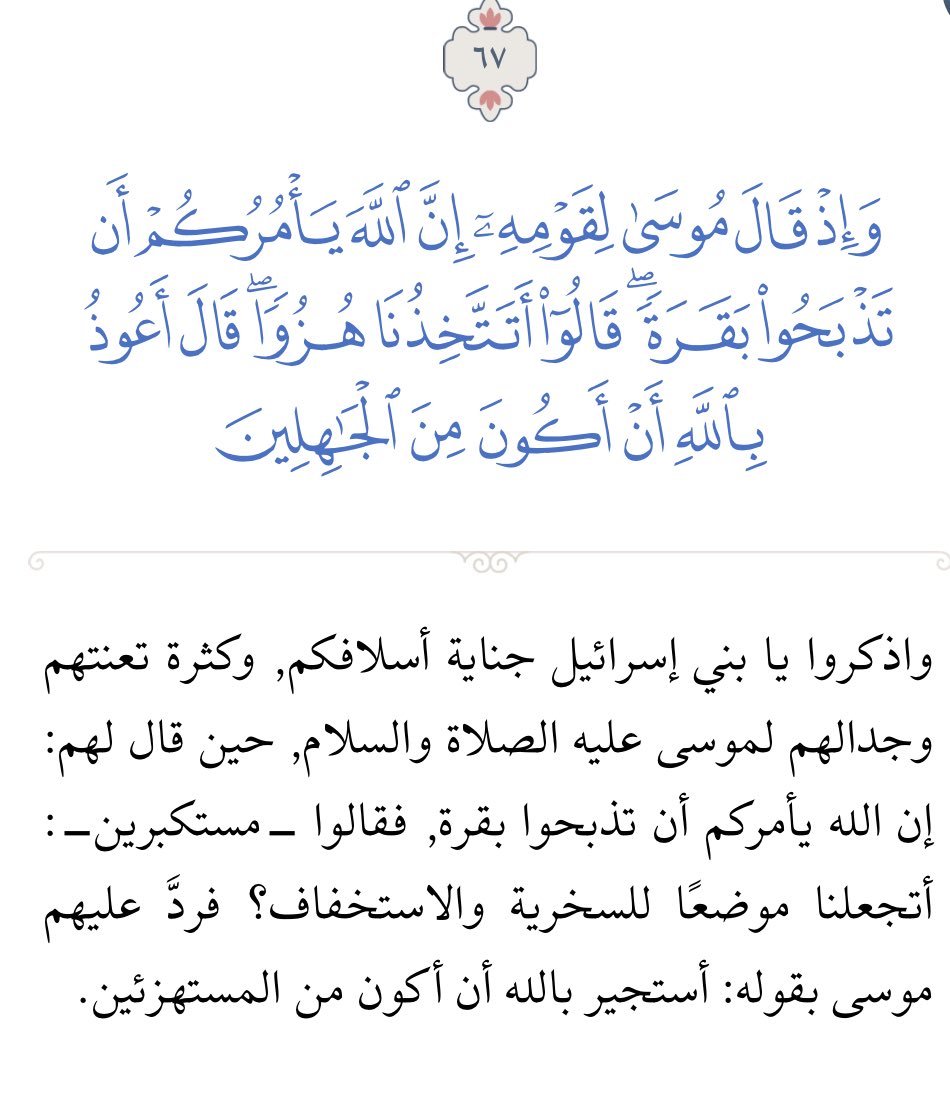 ٦٧
وَإِذۡ قَالَ مُوسَىٰ لِقَوۡمِهِۦٓ إِنَّ ٱللَّهَ يَأۡمُرُكُمۡ أَن
تَذۡبَحُواْ بَقَرَةٗۖ قَالُوٓاْ أَتَتَّخِذُنَا هُزُوٗاۖ قَالَ أَعُوذُ
بِٱللَّهِ أَنۡ أَكُونَ مِنَ ٱلۡجَٰهِلِينَ
واذكروا يا بني إسرائيل جناية أسلافكم, وكثرة تعنتهم
وجدالهم لموسى عليه الصلاة والسلام, حين قال لهم:
إن الله يأمركم أن تذبحوا بقرة, فقالوا ـ مستكبرين ـ :
أتجعلنا موضعًا للسخرية والاستخفاف؟ فردَّ عليهم
موسى بقوله: أستجير بالله أن أكون من المستهزئين.